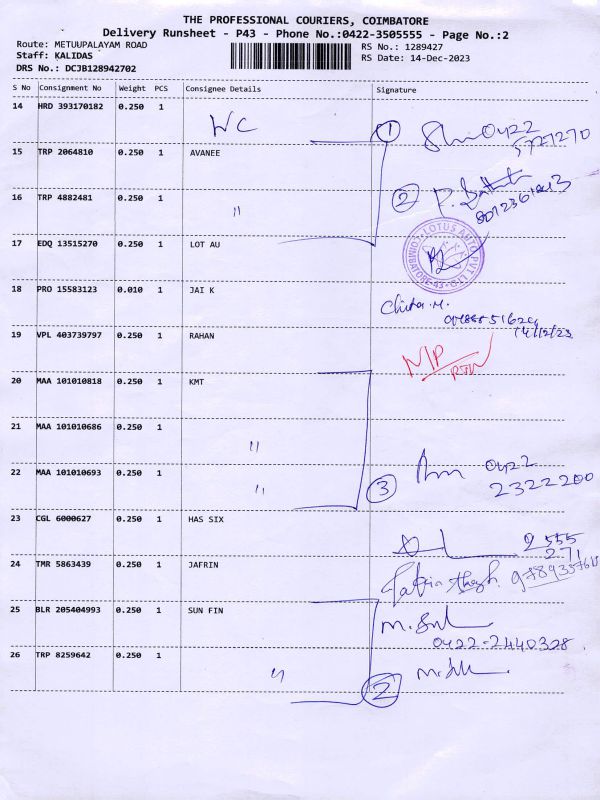 THE PROFESSIONAL COURIERS, COIMBATORE
Delivery Runsheet - P43 - Phone No.:0422-3505555 - Page No.:2
Route: METUUPALAYAM ROAD
RS No.: 1289427
Staff: KALIDAS
RS Date: 14-Dec-2023
DRS No.: DCJB128942702
S No Consignment No Weight PCS Consignee Details Signature
14 HRD 393170182 0.250 1 WC ① 0422
5727270
15 TRP 2064810 0.250 1 AVANEE
16 TRP 4882481 0.250 1 " ②
17 EDQ 13515270 0.250 1 LOT AU
LOTUS AUTO PVT LTD COIMBATORE-43
18 PRO 15583123 0.010 1 JAI K Chitra.M.
14/12/23
19 VPL 403739797 0.250 1 RAHAN N/P
RTN
20 MAA 101010818 0.250 1 KMT
21 MAA 101010686 0.250 1 "
22 MAA 101010693 0.250 1 " ③ 0422
2322200
23 CGL 6000627 0.250 1 HAS SIX 2555
271
24 TMR 5863439 0.250 1 JAFRIN
25 BLR 205404993 0.250 1 SUN FIN
0422-2440328
26 TRP 8259642 0.250 1 " ②